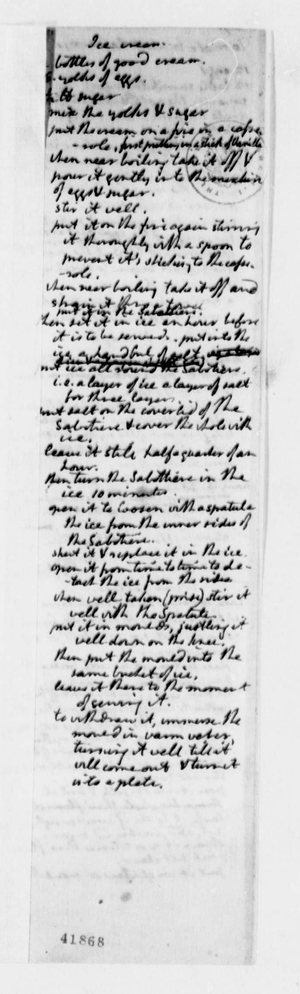 Ice cream.
bottles of good cream.
yolks of eggs.
lb sugar
mix the yolks & sugar
put the cream on a fire in a casse-
-role, first putting in a stick of Vanilla.
when near boiling take it off &
pour it gently into the mixture
of eggs & sugar.
stir it well.
put it on the fire again stirring
it thoroughly with a spoon to
prevent it's sticking to the casse-
-role.
when near boiling take it off and
strain it thro' a towel.
put it in the Sabottiere.
then set it in ice an hour before
it is to be served. put into the
ice a handful of salt.
put ice all around the Sabottiere.
i.e. a layer of ice a layer of salt
for three layers.
put salt on the coverlid of the
Sabotiere & cover the whole with
ice.
leave it still half a quarter of an
hour.
then turn the Sabottiere in the
ice 10 minutes.
open it to loosen with a spatula
the ice from the inner sides of
the Sabotiere.
shut it & replace it in the ice
open it from time to time to de-
-tach the ice from the sides
when well taken (prise) stir it
well with the Spatula.
put it in moulds, justling it
well down on the knee.
then put the mould into the
same bucket of ice.
leave it there to the moment
of serving it.
to withdraw it, immerse the
mould in warm water,
turning it well till it
will come out & turn it
into a plate.
41868